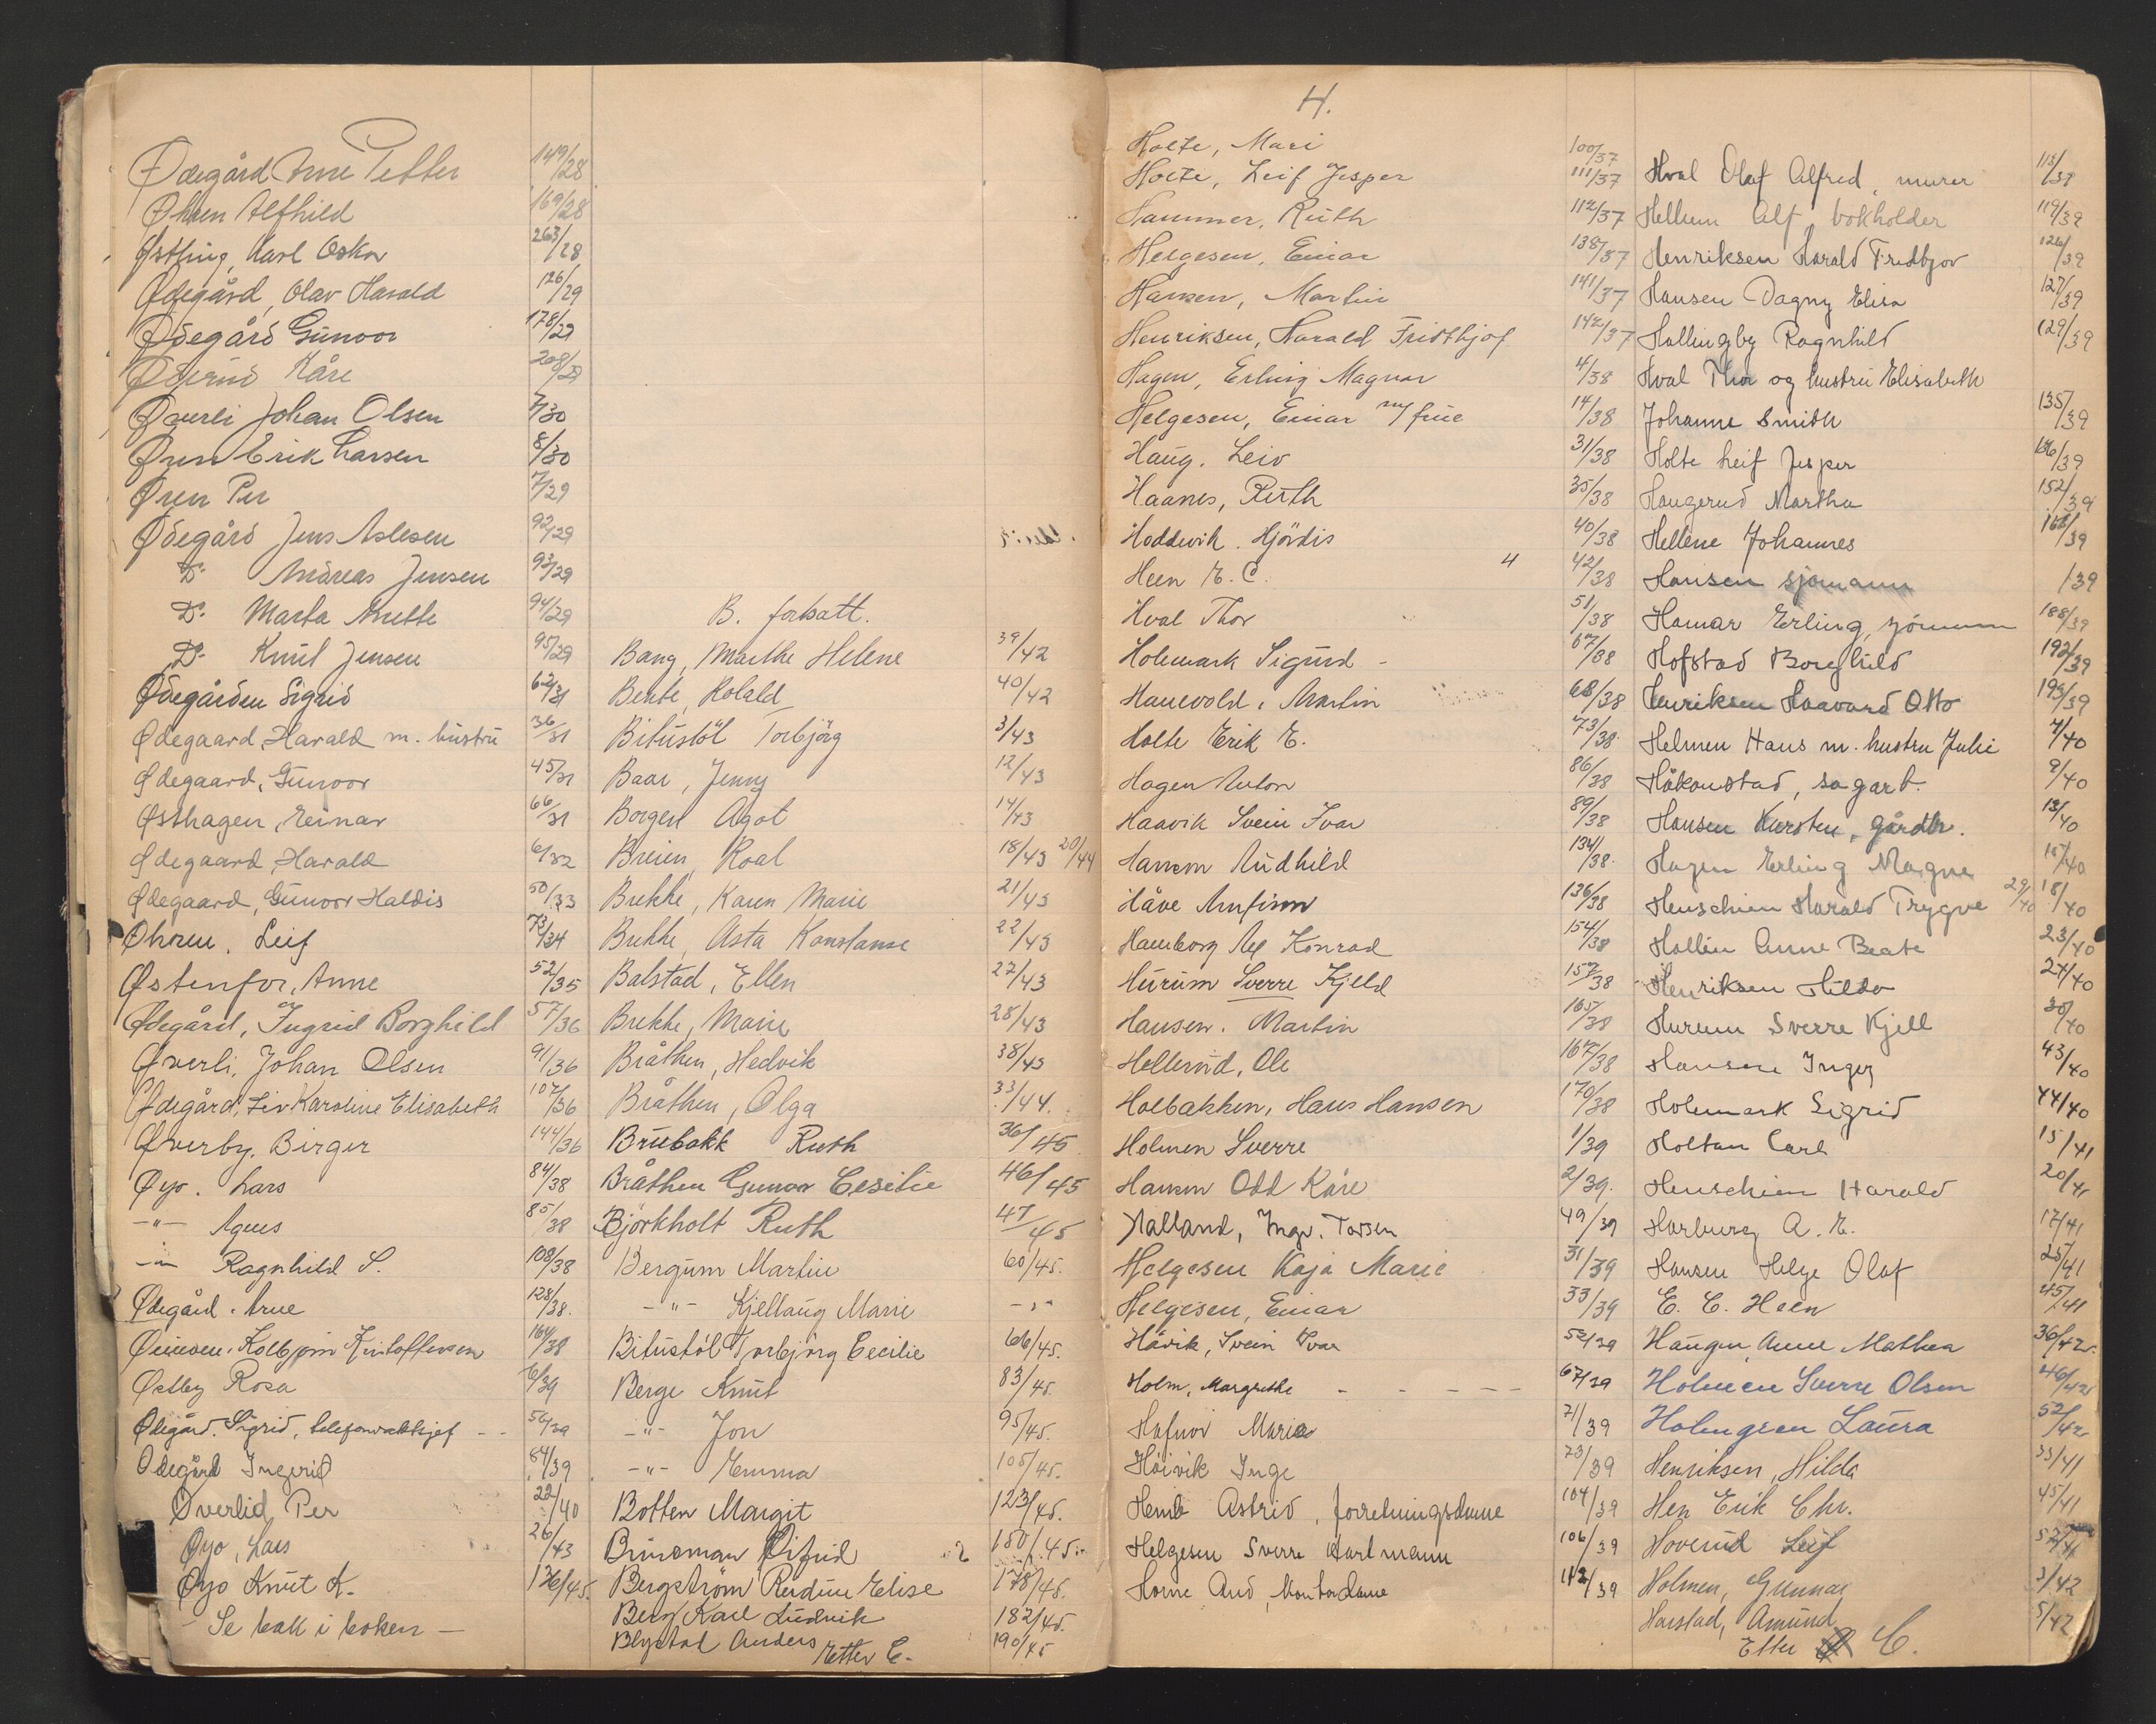 Ødegård Arne Petter 149/28
Øhren Alfhild 169/28
Østling, Karl Oskar 263/28
Ødegård, Olav Harald 126/29
Ødegård Gunvor 178/29
Øderud Kåre 208/29
Øverli Johan Olsen 7/30
Øren Erik Larsen 8/30
Øren Per 7/29
Ødegård Jens Aslesen 92/29
Do. Andreas Jensen 93/29
Do. Marta Anette 94/29
Do. Knut Jensen 95/29
Ødegården Sigrid 62/31
Ødegaard, Harald m. hustru 36/31
Ødegaard, Gunvor 45/31
Østhagen, Reinar 66/31
Ødegaard, Harald 6/32
Ødegaard, Gunvor Haldis 50/33
Øhren, Leif 73/34
Østenfor, Anne 52/35
Ødegård, Ingrid Borghild 57/36
Øverli, Johan Olsen 91/36
Ødegård, Liv Karoline Elisabeth 107/36
Øverby, Birger 144/36
Øyo. Lars 84/38
-"- Agnes 85/38
-"- Ragnhild S. 108/38
Ødegård. Arne 128/38.
Kristoffersen 164/38
Østby Rosa 6/39
Ødegård. Sigrid, 56/39
Ødegård Ingerid 84/39
Øverlid Per 22/40
Øyo, Lars 26/43
Øyo Knut K. 136/45.
- Se bak i boken -
B. fortsatt.
Bang, Marthe Helene 39/42
Bente, Robald 40/42
Bitustöl Torbjörg 3/43
Baar, Jenny 12/43
Borgen Agot 14/43
Breien, Roal 18/43 20/44
Brekke, Karen Marie 21/43
Brekke, Asta Konstanse 22/43
Balstad, Ellen 27/43
Brekke, Marie 28/43
Bråthen, Hedvik 38/43
Bråthen, Olga 33/44.
Brubakk Ruth 36/45
Bråthen Gunvor Cesilie 46/45
Björkholt Ruth 47/45
Bergum Martin 60/45.
-"- Kjellaug Marie -"-
Bitustöl Torbjörg Cecilie 66/45.
Berge Knut 83/45.
-"- Jon 95/45.
-"- Emma 105/45.
Botten Margit 123/45.
150/45.
Bergström Reidun Elise 178/45.
Berg Karl Ludvik 182/45.
Anders 190/45
Etter C.
H.
Holte, Mari 100/37
Holte, Leif Jesper 111/37
Hammer, Ruth 112/37
Helgesen, Einar 138/37
Hansen, Martin 141/37
Henriksen, Harald Fridthjof 142/37
Hagen, Erling Magnar 4/38
Helgesen, Einar m/ frue 14/38
Haug, Leiv 31/38
Haanes, Ruth 35/38
Hoddevik. Hjördis 40/38
Heen E. C. 42/38
Hval Thor 51/38
Holemark Sigurd - 67/38
Hanevold, Martin 68/38
Holte Erik E. 73/38
Hagen Anton 86/38
Haavik Svein Ivar 89/38
Hansen Audhild 134/38.
Håve Arnfinn 136/38
Hamborg Alf Konrad 154/38
Hurum Sverre Kjeld 157/38
Hansen. Martin 165/38
Hellerud, Ole 167/38
Holbakken, Hans Hansen 170/38
Holmen Sverre 1/39
Hansen Odd Kåre 2/39.
Halland, Ingv. Torsen 49/39
Helgesen Kaja Marie 31/39
Helgesen, Einar 33/39
Håvik, Svein Ivar 52/39
Holm, Margrethe - - - - - 67/39
Hafnor Maria 71/39
Höivik Inge 73/39
Astrid, forretningsdame 104/39
Helgesen Sverre Hartmann 106/39
Horne Aud, kontordame 112/39
Hval Olaf Alfred, murer 113/39
Hellum Alf, bokholder 119/39
Henriksen Harald Fridtjov 126/39
Hansen Dagny Elisa 127/39
Hallingby Ragnhild 129/39
Hval Thor og hustru Elisabeth
Johanne Smith 135/39
Holte Leif Jesper 136/39
Haugerud Martha 152/39
Hellene Johannes 168/39
Hansen sjømann /39
Hamar Erling, sjömann 188/39
Hofstad Borghild 192/39
Henriksen Haavard Otto 193/39
Helmen Hans m. hustru Julie 7/40
Håkonstad, sagarb. 9/40
Hansen Kersten, gårdbr. 13/40
Hagen Erling Magne 15/40
Henschien Harald Trygve 29/40 18/40
Hollin Anne Beate 23/40
Henriksen Hilda 24/40
Hurum Sverre Kjell 30/40
Hansen Inger 43/40
Holemark Sigrid 44/40
Holtan Carl 15/41
Henschien Harald 20/41
Harburg A. E. 17/41
Hansen Helge Olaf 25/41
E. C. Heen 45/41
Haugen, Anne Mathea 36/42.
Holmen Sverre Olsen 46/42
Holmgren Laura 52/42
Henriksen, Hilda 33/41
Hen Erik Chr. 45/41
Hoverud Leif
Holmen, Gunnar 3/42
Harstad, Amund 5/42
Etter C.